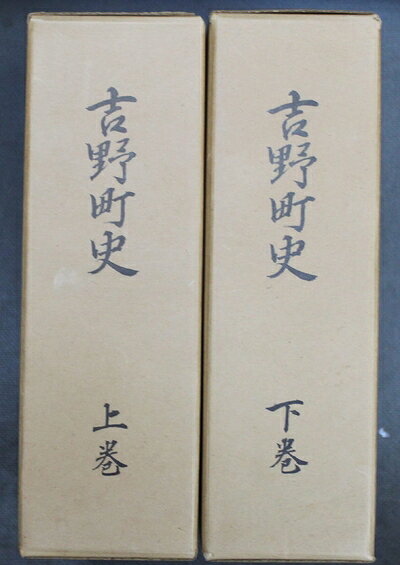 吉野町史
上巻
吉野町史
下巻